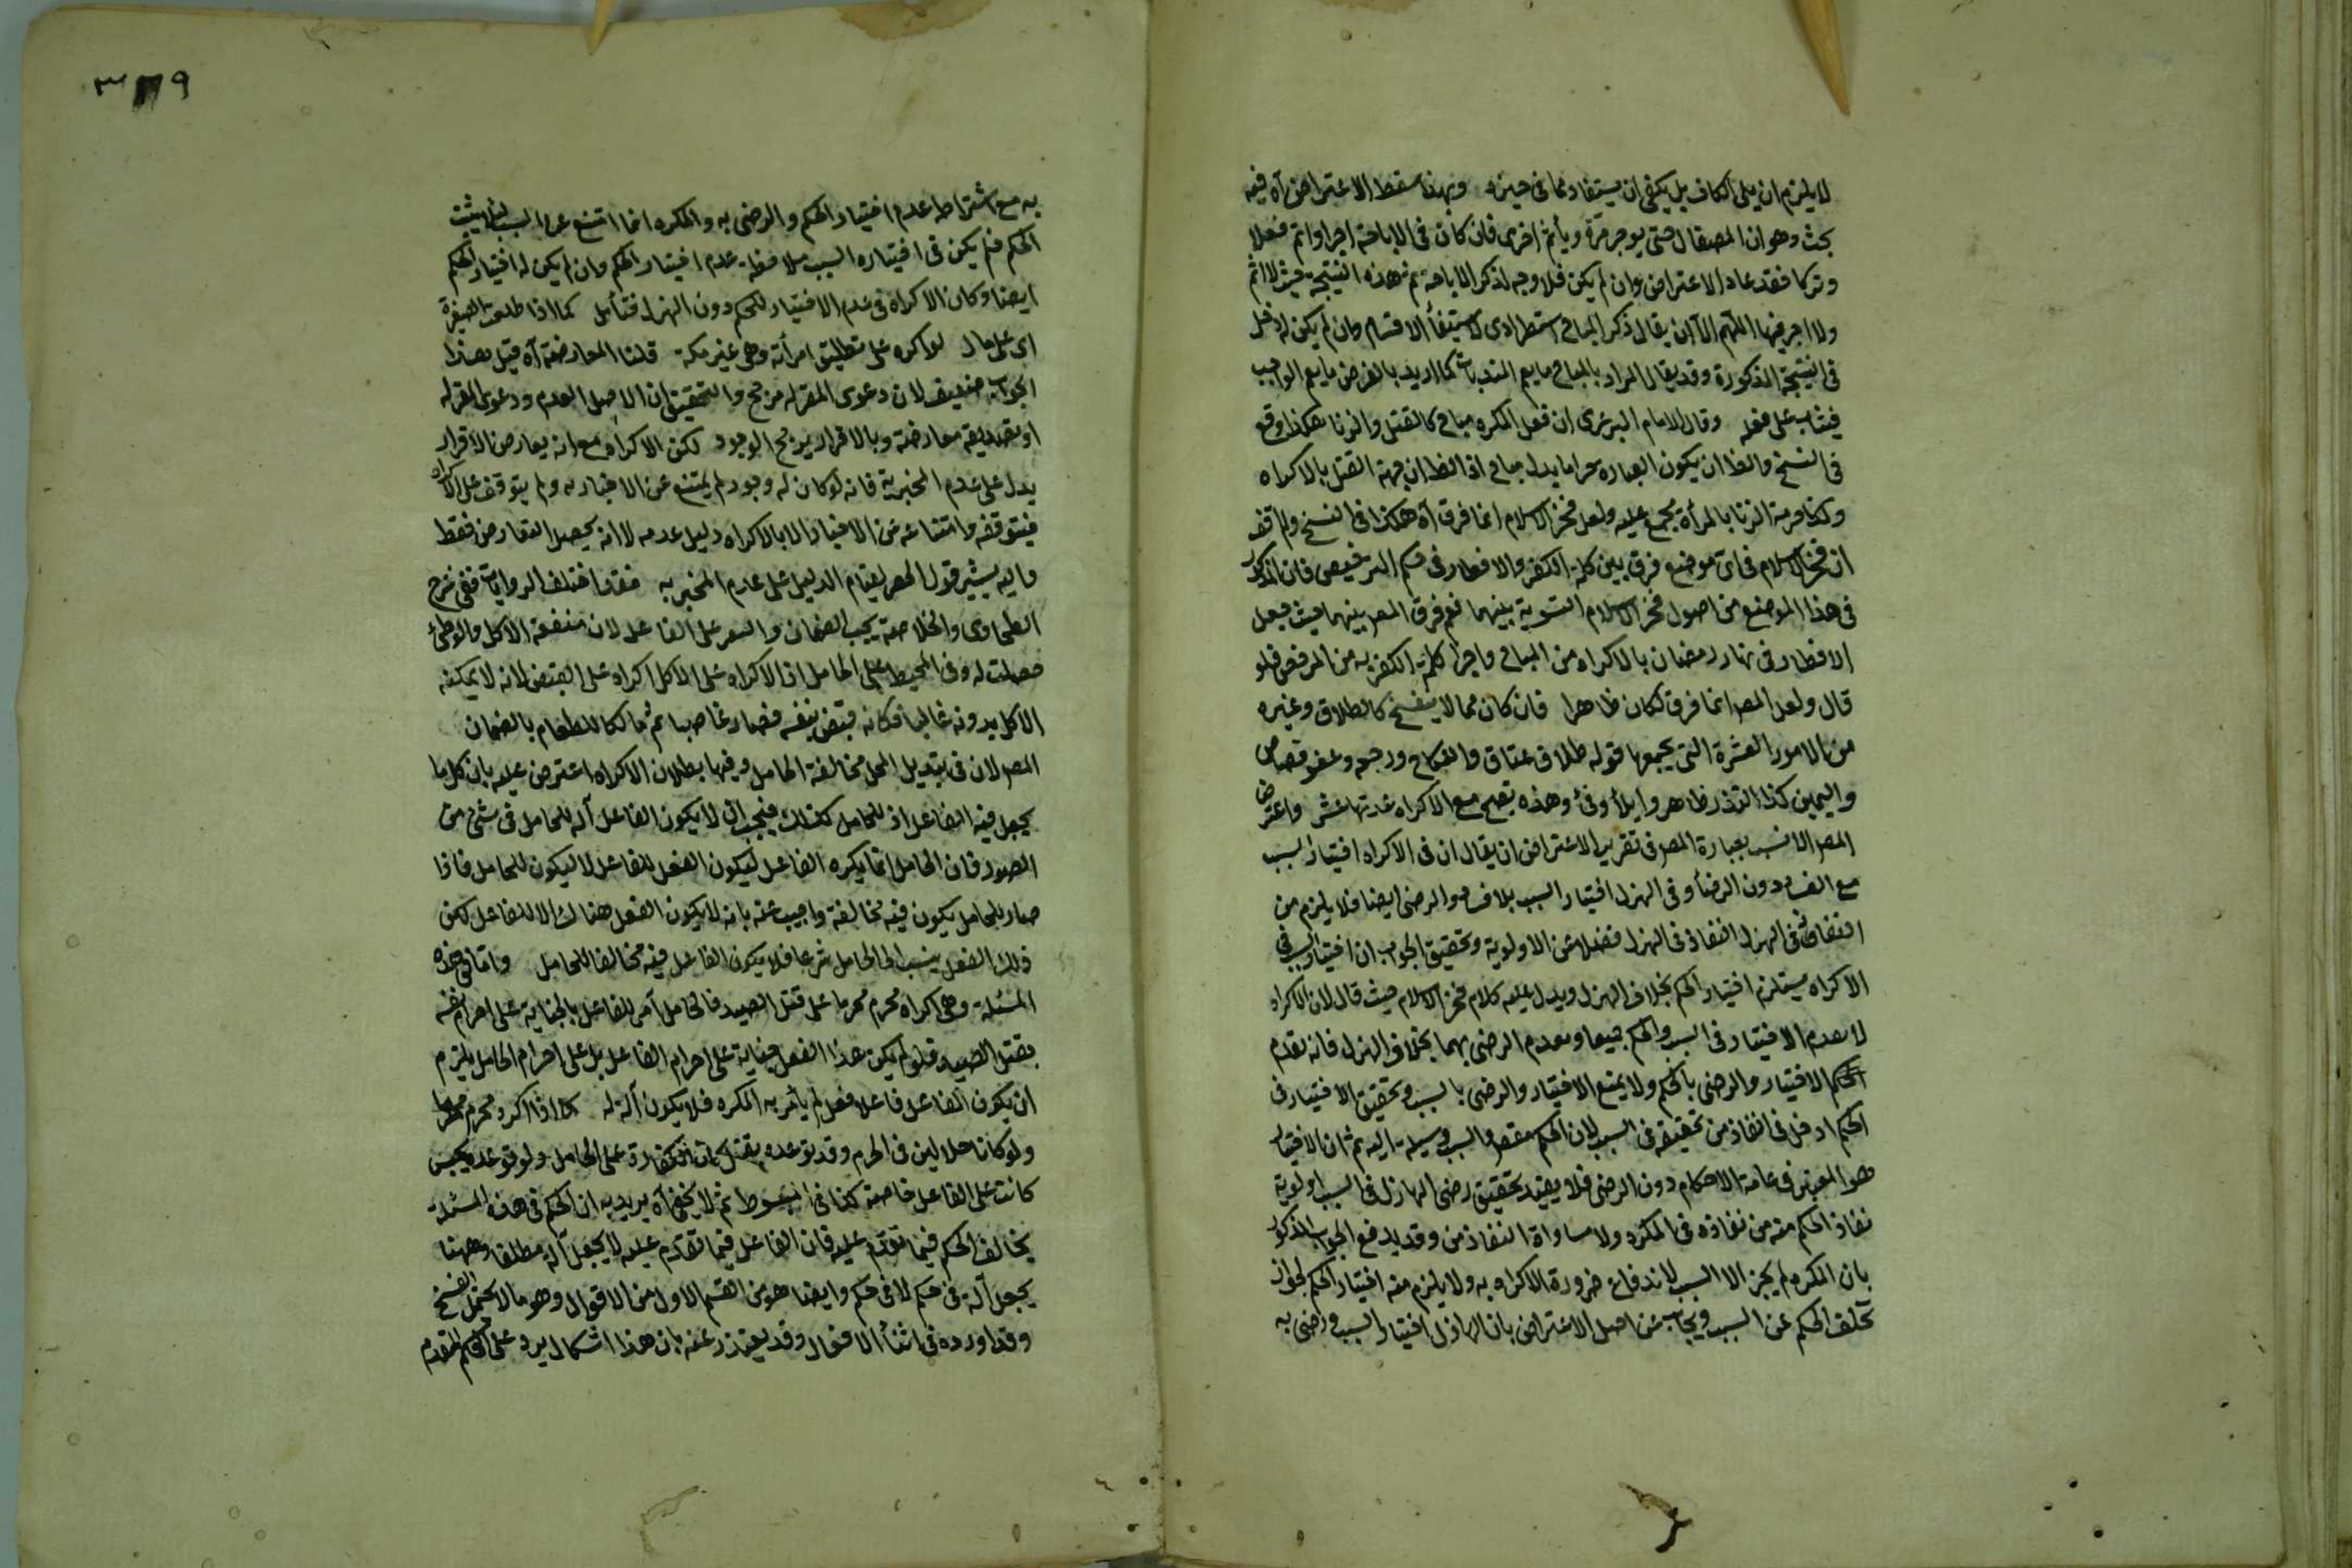 لا يلزم ان يلى الكاف بل يكفى ان يستفاد مما فى حيزه وبهذا سقط الاعتراض آه فيه
بحث وهو ان المص قال حتى يوجر مرة ويأثم اخرى فان كان فى الاباحة اجر او اثم فعلا
وتركا فقد عاد الاعتراض وان لم يكن فلا وجه لذكر الاباحة ثم هذه النتيجة حيث لا اثم
ولا اجر فيها اللهم الا ان يقال ذكر المباح استطرادى لاستيفاء الاقسام وان لم يكن له دخل
فى النتيجة المذكورة وقد يقال المراد بالمباح ما يعم المندبات كما اريد بالفرض ما يعم الواجب
فيثاب على فعله وقال الامام البرغرى ان فعل المكره مباح كالقتل والزنا هكذا وقع
فى النسخ والظ ان يكون العباره حراما بدل مباح اذ الظ ان حرمة القتل بالاكراه
وكذا حرمة الزنا بالمرأة مجمع عليه ولعل فخر الاسلام انما فرق آه هكذا فى النسخ ولم اقف
ان فخر الاسلام فى اى موضع فرق بين كلمة الكفر والافطار فى حكم الترخيص فان المذكور
فى هذا الموضع من اصول فخر الاسلام التسوية بينهما نعم فرق المص بينهما حيث جعل
الافطار فى نهار رمضان بالاكراه من المباح واجراء كلمة الكفر به من المرخص فلو
قال ولعل المص انما فرق لكان ظاهرا فان كان مما لا ينفسخ كالطلاق وغيره
من الامور العشرة التى يجمعها قوله طلاق عتاق والنكاح ورجعة وعفو قصاص
واليمين كذا النذر ظاهر وايلاء وفئ وهذه تصح مع الاكراه عدتها عشر واعترض
المص الانسب بعبارة المص فى تقرير الاعتراض ان يقال ان فى الاكراه اختيار السبب
مع الفساد دون الرضاء وفى الهزل اختيار السبب بلا فساد والرضى ايضا فلا يلزم من
النفاذ فى الهزل النفاذ فى الهزل فضلا عن الاولوية وتحقيق الجواب ان اختيار السبب فى
الاكراه يستلزم اختيار الحكم بخلاف الهزل ويدل عليه كلام فخر الاسلام حيث قال لان الاكراه
لا يعدم الاختيار فى السبب والحكم جميعا ويعدم الرضى بهما بخلاف الهزل فانه يعدم
الحكم الاختيار والرضى بالحكم ولا يمنع الاختيار والرضى بالسبب وتحقيق الاختيار فى
الحكم ادخل فى النفاذ من تحقيقه فى السبب لان الحكم مقصد والسبب وسيلة اليه ثم ان الاختيار
هو المعتبر فى عامة الاحكام دون الرضى فلا يفيد تحقيق رضى الهازل فى السبب اولوية
نفاذ الحكم منه من نفاذه فى المكره ولا مساواة النفاذين وقد يدفع الجواب المذكور
بان المكره لم يجز الا السبب لاندفاع ضرورة الاكراه به ولا يلزم منه اختيار الحكم لجواز
تخلف الحكم عن السبب ويجاب عن اصل الاعتراض بان الهازل اختيار السبب ورضى به
٣٧٩
به مع اشتراط عدم اختيار الحكم والرضى به والمكره انما امتنع عن السبب لئلا يثبت
الحكم فلم يكن فى اختياره السبب ملاحظة عدم اختيار الحكم وان لم يكن له اختيار الحكم
ايضا وكان الاكراه فى عدم الاختيار للحكم دون الهزل فتأمل كما اذا طلقت الصغيرة
اى على مال لو اكره على تطليق امرأته وهى غير مكرهة قلنا المعارضة آه قيل هذا
الجواب ضعيف لان دعوى المقر له مرجح والتحقيق ان الاصل العدم ودعوى المقر له
او تصديقه معارضة وبالاقرار يرجح الوجود لكن الاكراه مع انه يعارض الاقرار
يدل على عدم المخبر به فانه لو كان له وجود لم يمتنع عن الاخبار به ولم يتوقف على الاكراه
فيتوقفه وامتناعه عن الاخبار الا بالاكراه دليل عدمه لا انه يحصل التعارض فقط
واليه يشير قول المص لقيام الدليل على عدم المخبر به فقد اختلف الروايات ففى شرح
الطحاوى والخلاصة يجب الضمان والعقر على الفاعل لان منفعة الاكل والوطئ
حصلت له وفى المحيط على الحامل اذ الاكراه على الاكل اكراه على القبض لانه لا يمكنه
الاكل بدونه غالبا فكانه قبض بنفسه فصار غاصبا ثم مالكا للطعام بالضمان
المص لان فى تبديل المحل مخالفة الحامل وفيها بطلان الاكراه اعترض عليه بان كل ما
يجعل فيه الفاعل اذ للحامل كذلك فيجب ان لا يكون الفاعل آلة للحامل فى شئ من
الصور فان الحامل انما يكره الفاعل ليكون الفعل للفاعل لا ليكون للحامل فاذا
صار للحامل يكون فيه مخالفة واجيب عنه بانه لا يكون الفعل هناك الا للفاعل لكن
ذلك الفعل ينسب الى الحامل شرعا فلا يكون الفاعل فيه مخالفا للحامل واما فى هذه
المسئلة وهى اكراه محرم محرما على قتل الصيد فالحامل آمر للفاعل بالجناية على احرام نفسه
بقتل الصيد فلو لم يكن هذا الفعل جناية على احرام الفاعل بل على احرام الحامل يلزم
ان يكون الفاعل فاعلا فعل لم يأمر به المكره فلا يكون آلة له كما اذا اكره محرم محرما
ولو كانا حلالين فى الحرم وقد توعده بقتل كان الكفارة على الحامل ولو توعده بحبس
كانت على الفاعل خاصة كذا فى المبسوط ثم لا يخفى آه يريد به ان الحكم فى هذه المسئلة
يخالف الحكم فيما تقدم عليه فان الفاعل فيما تقدم عليه لا يجعل آلة مطلقا وههنا
يجعل آلة فى حكم لا فى حكم وايضا هو من القسم الاول من الاقوال وهو ما لا يحتمل الفسخ
وقد اورده فى اثناء الافعال وقد يعتذر عنه بان هذا اشكال يرد على الحكم المتقدم